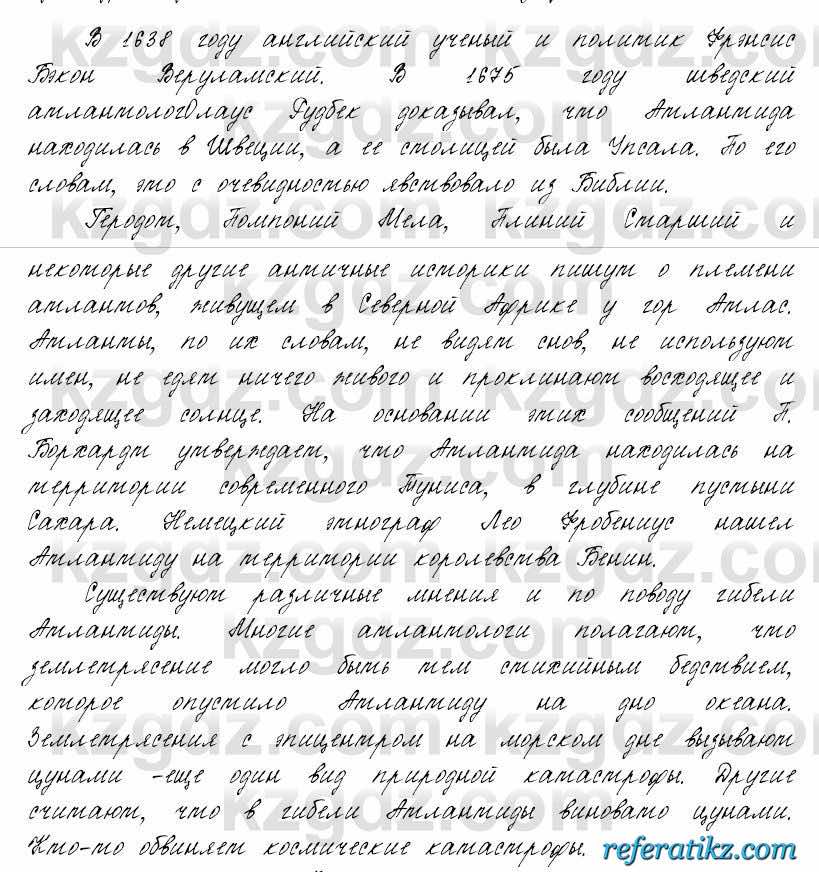 В 1638 году английский ученый и политик Фрэнсис
Бэкон Веруламский. В 1675 году шведский
атлантологОлаус Рудбек доказывал, что Атлантида
находилась в Швеции, а ее столицей была Упсала. По его
словам, это с очевидностью явствовало из Библии.
Геродот, Помпоний Мела, Плиний Старший и
некоторые другие античные историки пишут о племени
атлантов, живущем в Северной Африке у гор Атлас.
Атланты, по их словам, не видят снов, не используют
имен, не едят ничего живого и проклинают восходящее и
заходящее солнце. На основании этих сообщений П.
Борхардт утверждает, что Атлантида находилась на
территории современного Туниса, в глубине пустыни
Сахара. Немецкий этнограф Лео Фробениус нашел
Атлантиду на территории королевства Бенин.
Существуют различные мнения и по поводу гибели
Атлантиды. Многие атлантологи полагают, что
землетрясение могло быть тем стихийным бедствием,
которое опустило Атлантиду на дно океана.
Землетрясения с эпицентром на морском дне вызывают
цунами -еще один вид природной катастрофы. Другие
считают, что в гибели Атлантиды виновато цунами.
Кто-то обвиняет космические катастрофы.
referatikz.com
kzgdz.com